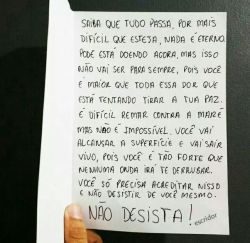 SAIBA QUE TUDO PASSA, POR MAIS
DIFÍCIL QUE ESTEJA, NADA É ETERNO.
PODE ESTÁ DOENDO AGORA, MAS ISSO
NÃO VAI SER PARA SEMPRE, POIS VOCÊ
É MAIOR QUE TODA ESSA DOR QUE
ESTÁ TENTANDO TIRAR A TUA PAZ.
É DIFÍCIL REMAR CONTRA A MARÉ
MAS NÃO É IMPOSSÍVEL. VOCÊ VAI
ALCANÇAR A SUPERFÍCIE E VAI SAIR
VIVO, POIS VOCÊ É TÃO FORTE QUE
NENHUMA ONDA IRÁ TE DERRUBAR.
VOCÊ SÓ PRECISA ACREDITAR NISSO
E NÃO DESISTIR DE VOCÊ MESMO.
NÃO DESISTA!
escridor